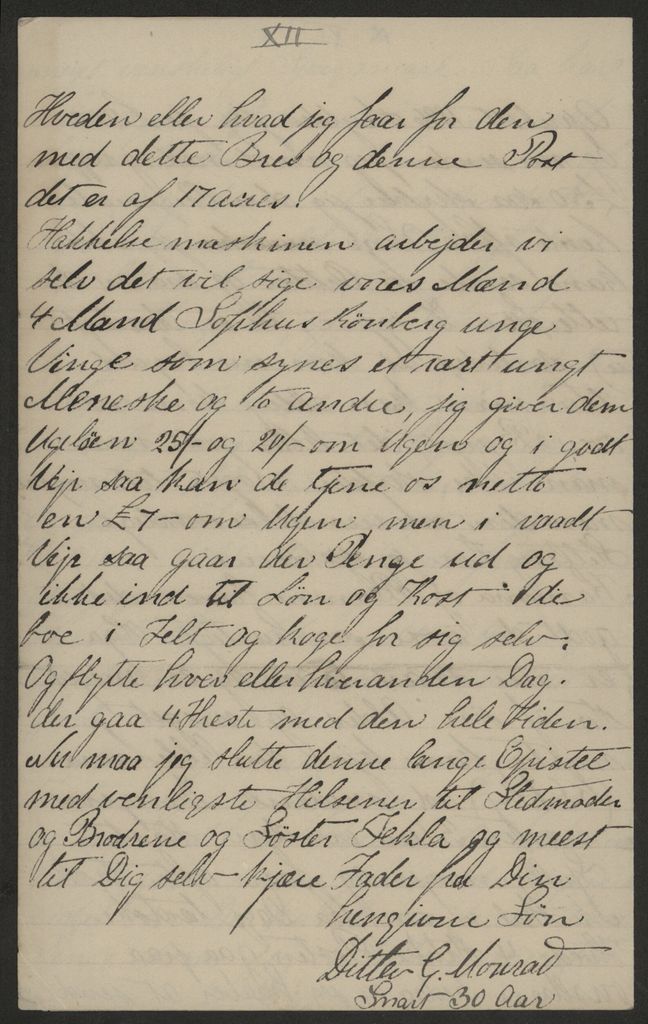 XII
Hveden eller hvad jeg faar for den
med dette Brev og denne Post
det er af 17 acres.
Hakkelse maskinen arbejder vi
selv det vil sige vores Mænd
4 Mænd Sophus Rönberg unge
Vinge som synes et rart ungt
Meneske og to andre, jeg giver dem
Ugelöen 25/- og 20/- om Ugen og i godt
Vejr saa kan de tjene os netto
en £7 - om Ugen men i vaadt
Vejr saa gaar der Penge ud og
ikke ind til Lön og Kost. de
boe i Telt og koge for sig selv.
Og flytte hver eller hveranden Dag.
der gaa 4 Heste med den hele Tiden.
Nu maa jeg slutte denne lange Epistel
med venligste Hilsener til Stedmoder
og Brødrene og Söster Tekla og meest
til Dig selv kjære Fader fra Din
hengivne Sön
Ditlev G. Monrad
Snart 30 Aar